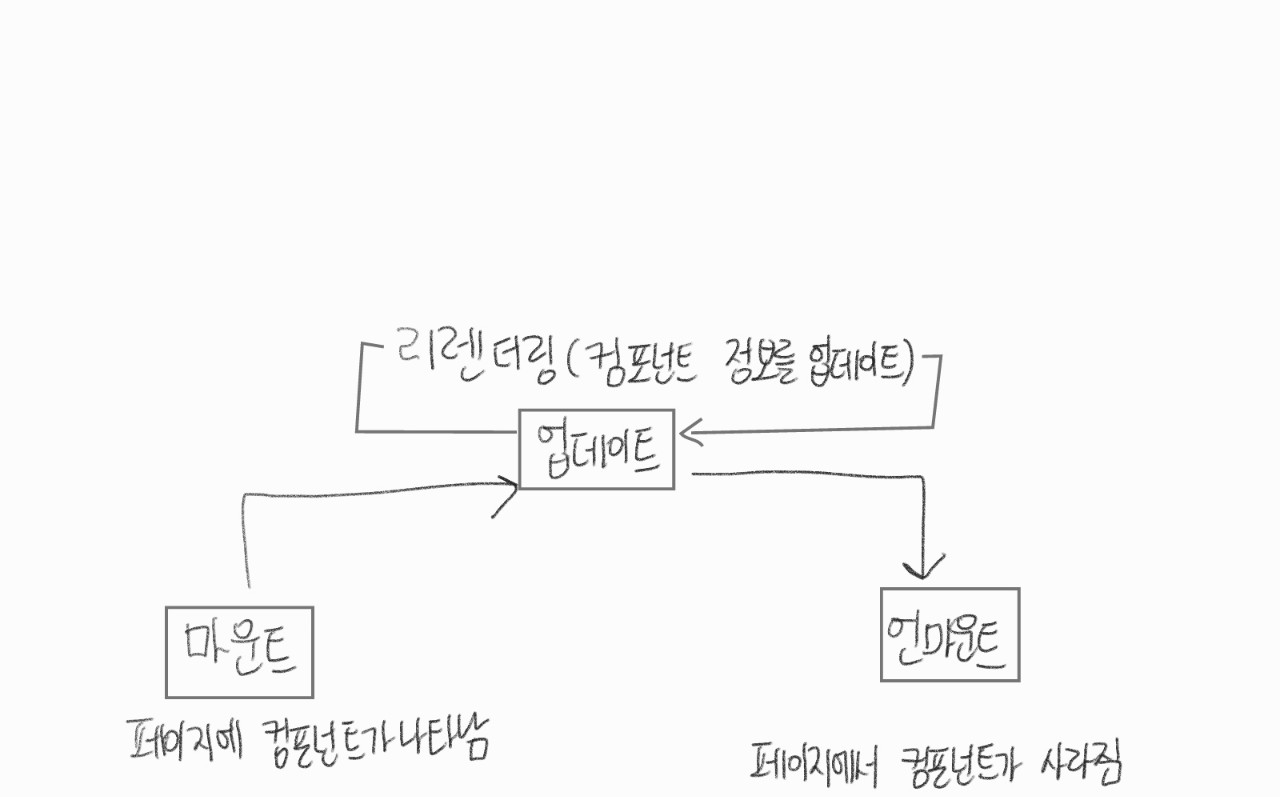 리렌더링(컴포넌트 정보를 업데이트)
업데이트
마운트
언마운트
페이지에 컴포넌트가 나타남
페이지에서 컴포넌트가 사라짐